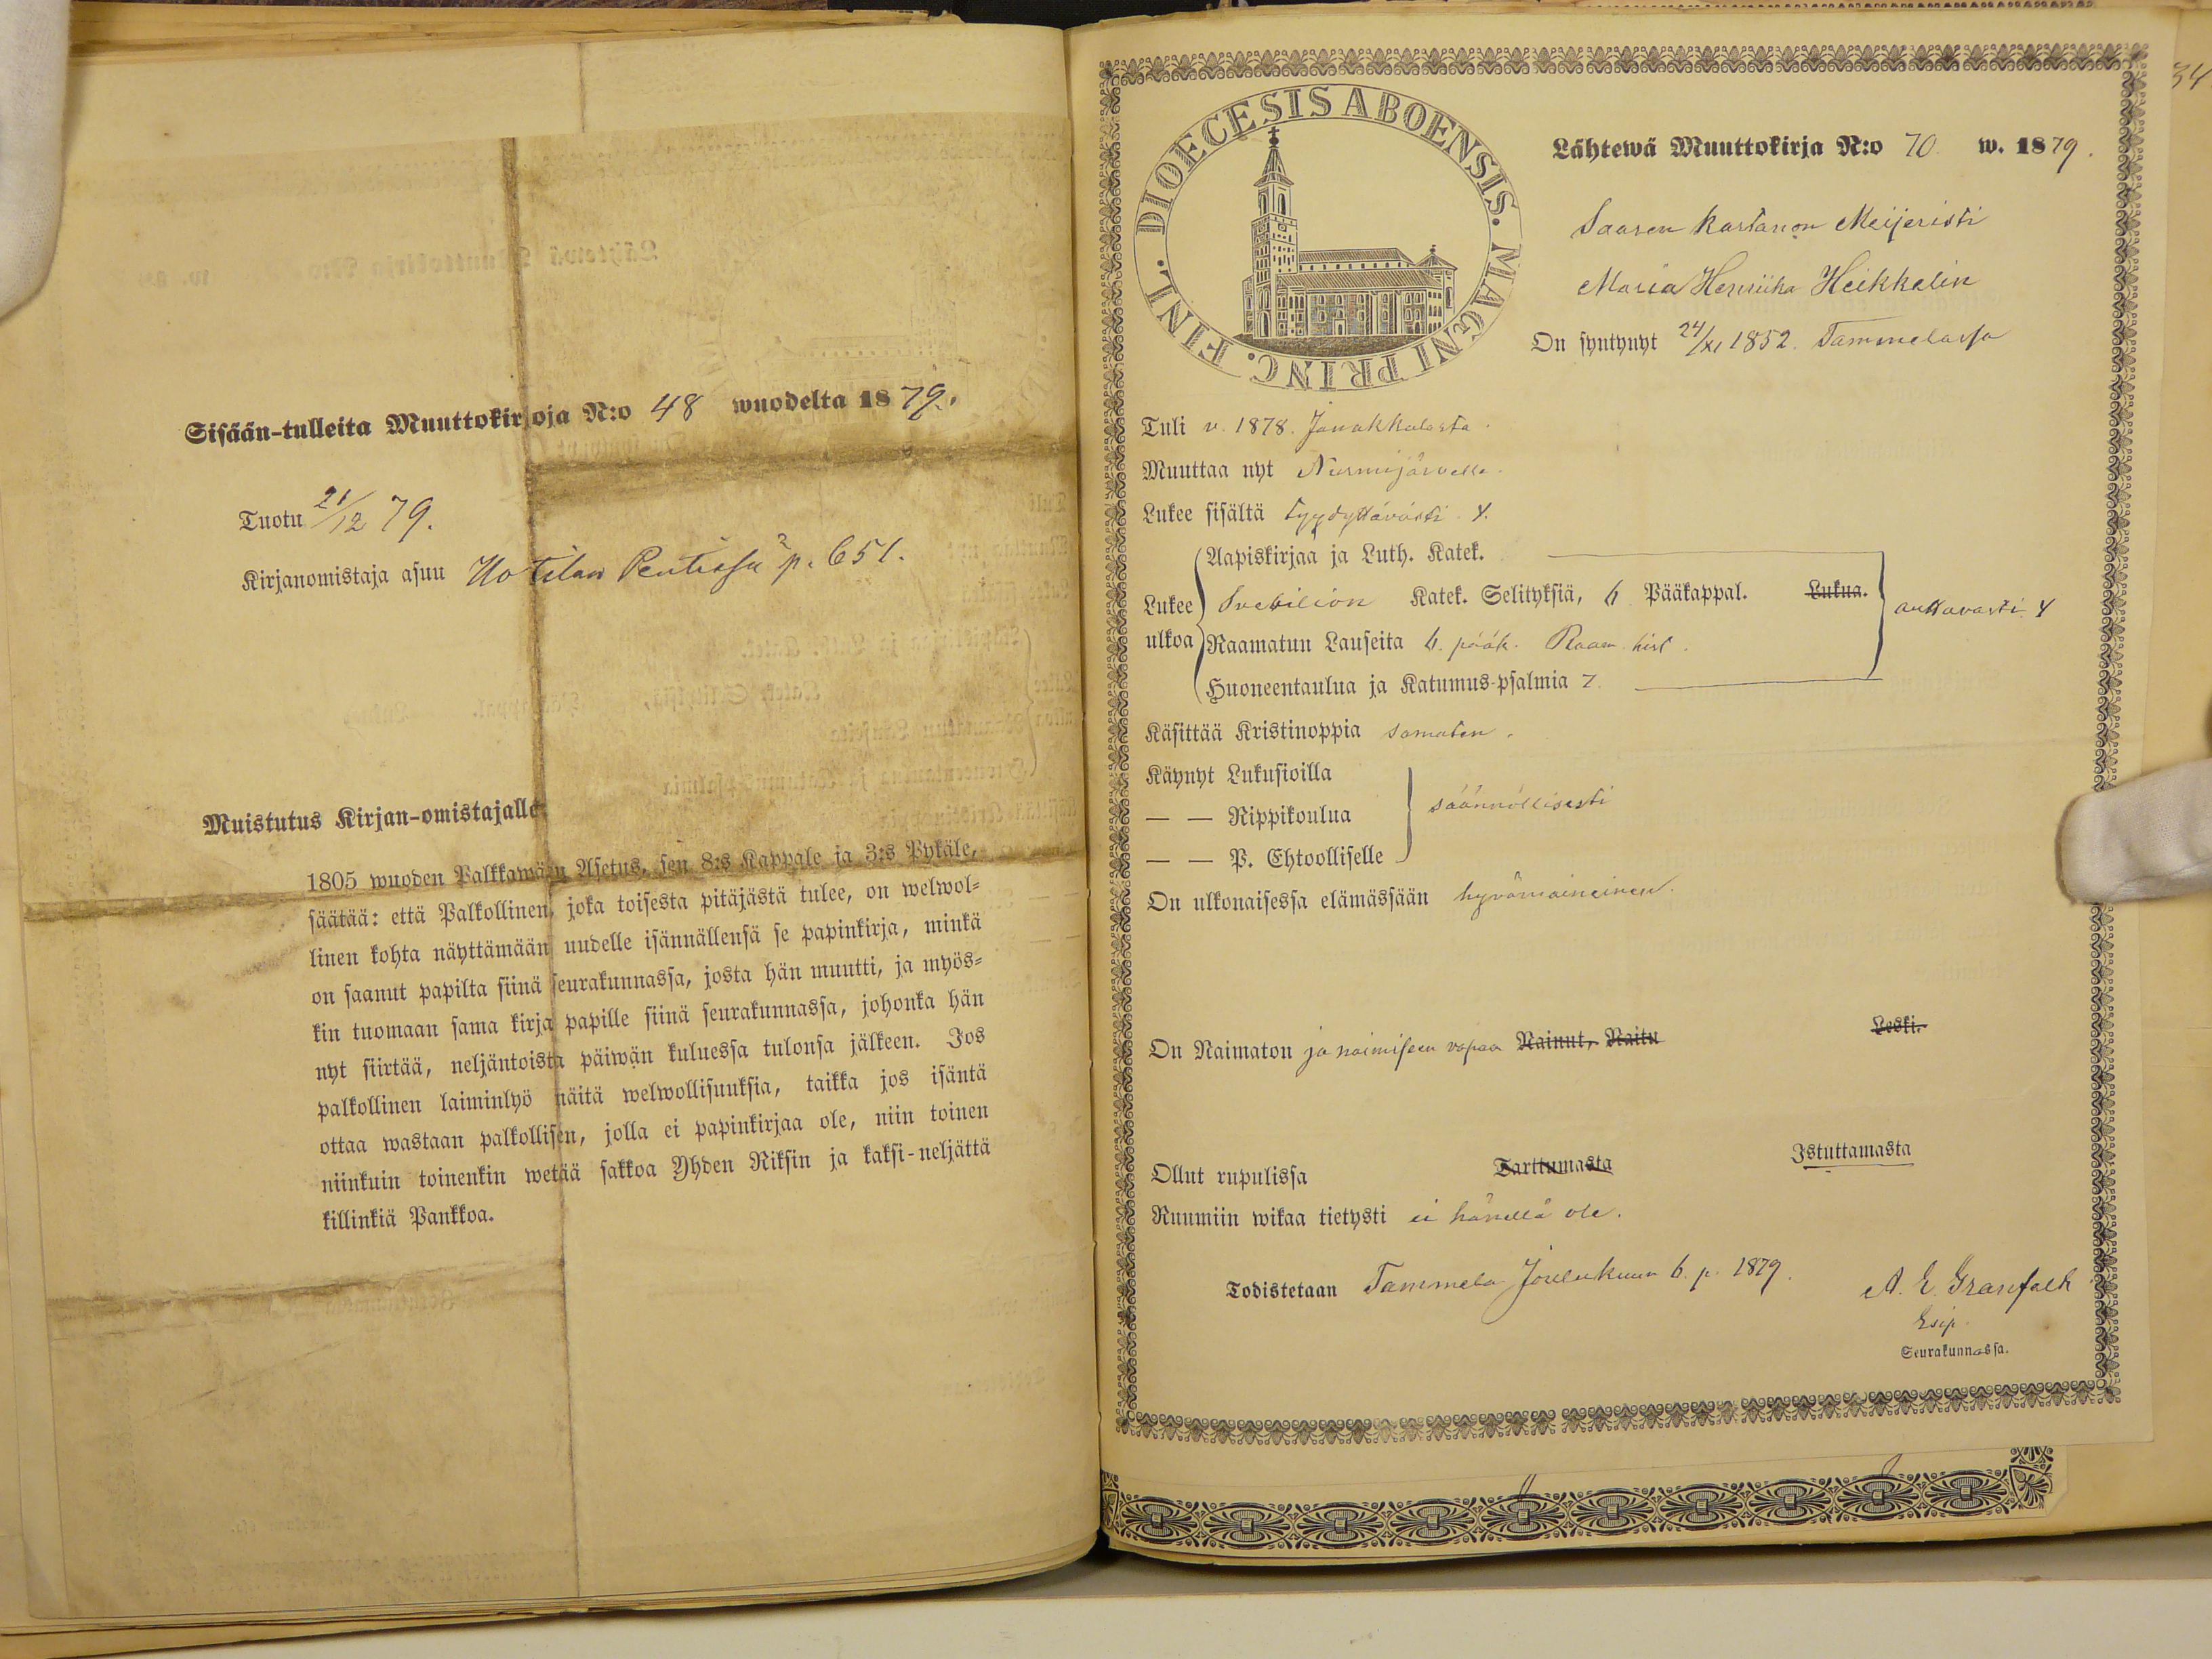 Sisään-tulleita Muuttokirjoja N:o 48 wuodelta 1879.
Tuotu 21/12 79.
Kirjanomistaja asuu Uotilan Pentissä p. 651.
Muistutus Kirjan-omistajalle.
1805 wuoden Palkkawäen Asetus, sen 8:s Kappale ja 3:s Pykäle,
säätää: että Palkollinen, joka toisesta pitäjästä tulee, on welwol=
linen kohta näyttämään uudelle isännällensä se papinkirja, minkä
on saanut papilta siinä seurakunnassa, josta hän muutti, ja myös=
kin tuomaan sama kirja papille siinä seurakunnassa, johonka hän
nyt siirtää, neljäntoista päiwän kuluessa tulonsa jälkeen. Jos
palkollinen laiminlyö näitä welwollisuuksia, taikka jos isäntä
ottaa wastaan palkollisen, jolla ei papinkirjaa ole, niin toinen
niinkuin toinenkin wetää sakkoa Yhden Riksin ja kaksi-neljättä
killinkiä Pankkoa.
34
FINL. DIOECESIS ABOENSIS. MAGNI PRINC.
Lähtewä Muuttokirja N:o 70. w. 1879.
Saaren kartanon Meijeristi
Maria Henriika Heikkelin
On syntynyt 24/XI 1852. Tammelassa
Tuli v. 1878. Janakkalasta.
Muuttaa nyt Nurmijärvelle.
Lukee sisältä tyydyttävästi. 4.
Lukee ulkoa
Aapiskirjaa ja Luth. Katek.
Svebilion Katek. Selityksiä, 6 Pääkappal. Lukua.
auttavasti. 4
Raamatun Lauseita 6. pääk. Raam. hist.
Huoneentaulua ja Katumus-psalmia 7.
Käsittää Kristinoppia samaten.
Käynyt Lukusioilla
— — Rippikoulua
säännöllisesti
— — P. Ehtoolliselle
On ulkonaisessa elämässään hyvämaineinen.
On Naimaton ja naimiseen vapaa Nainut, Naitu Leski.
Ollut rupulissa Tarttumasta Istuttamasta
Ruumiin wikaa tietysti ei hänellä ole.
Todistetaan Tammela Joulukuun 6. p. 1879.
A. E. Granfelt
Esip.
Seurakunnassa.